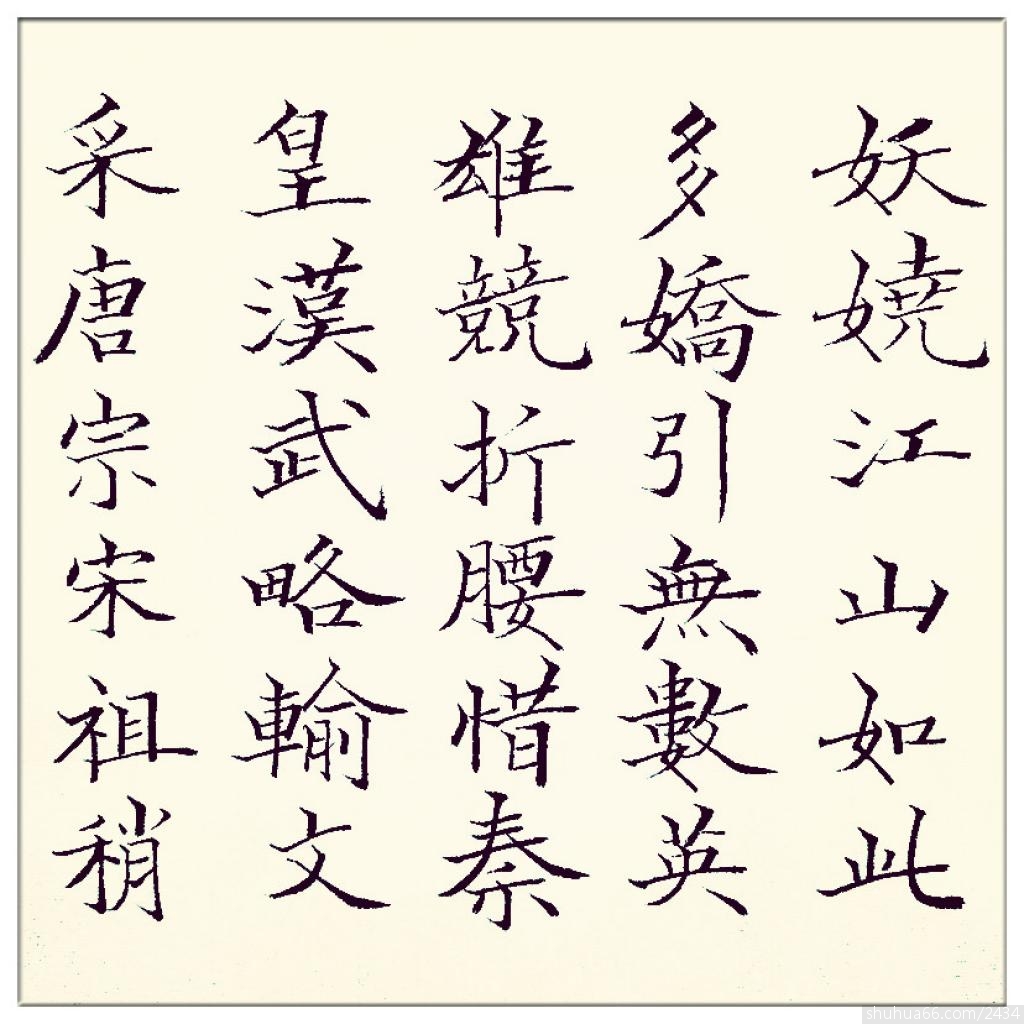 妖嬈江山如此
多嬌引無數英
雄競折腰惜秦
皇漢武略輸文
采唐宗宋祖稍
shuhua66.com/2434